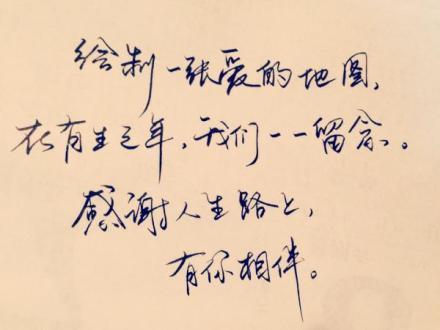 绘制一张爱的地图，
在有生之年，我们一一留念。
感谢人生路上，
有你相伴。